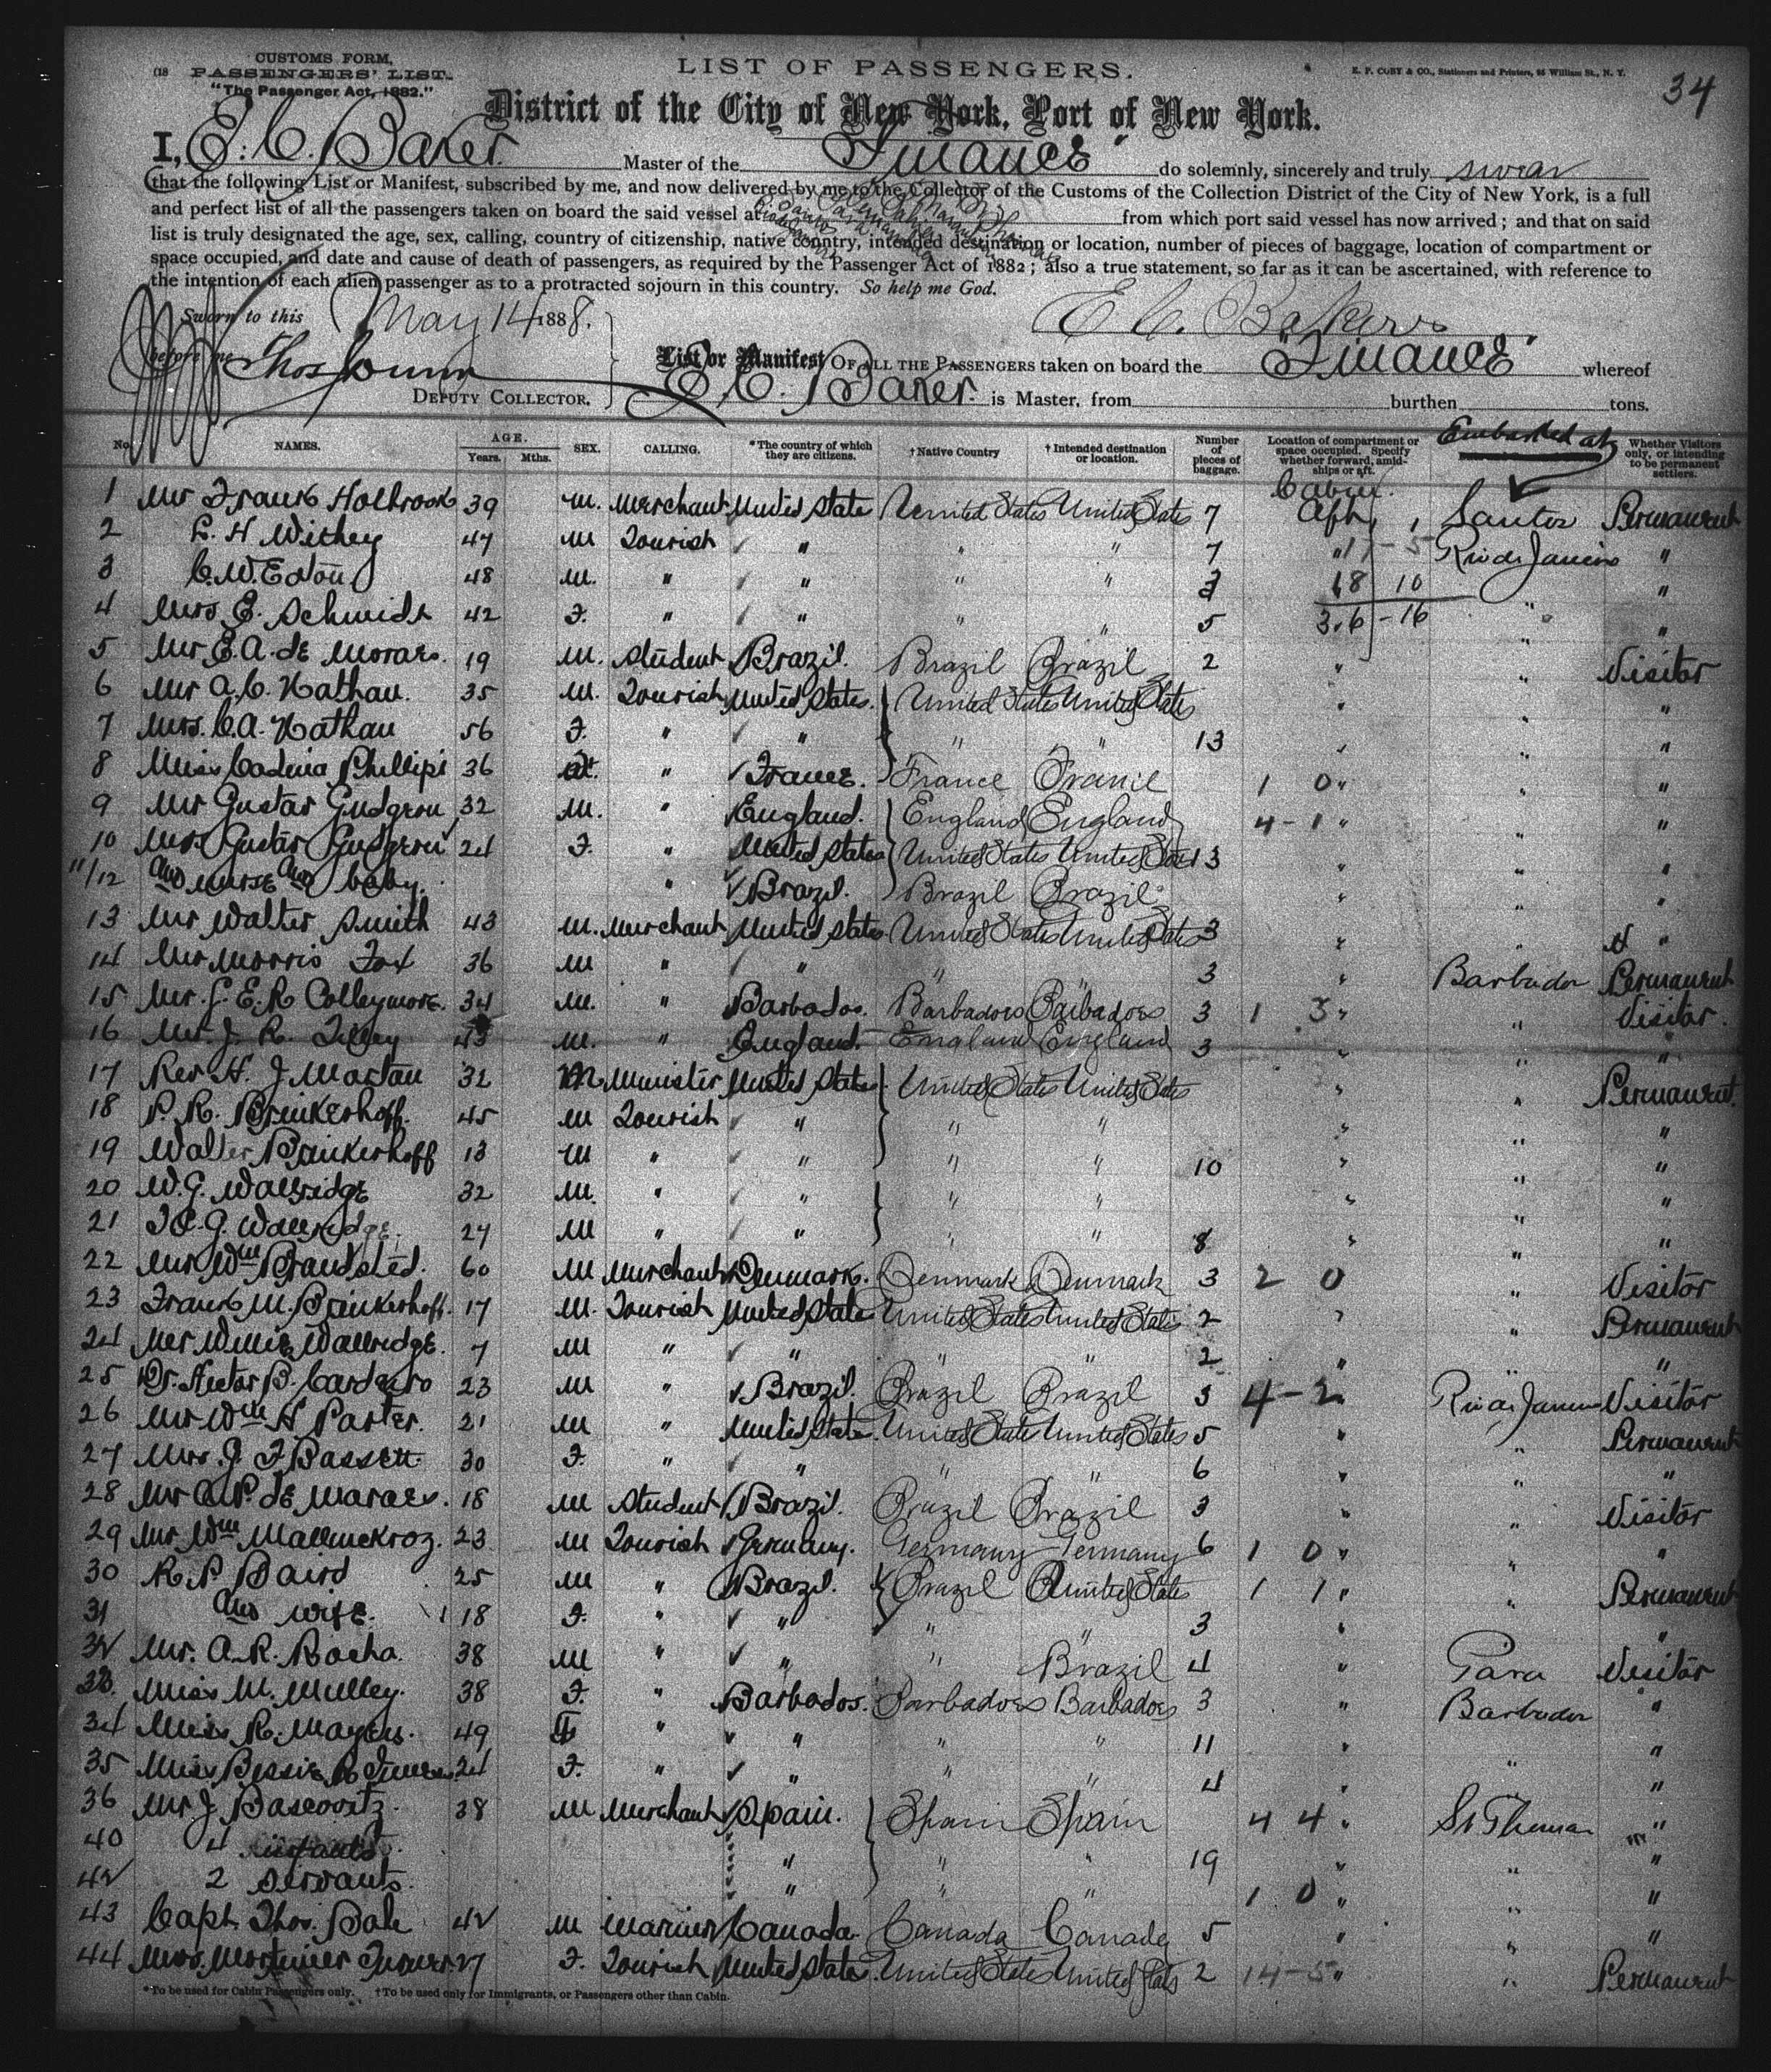 CUSTOMS FORM,
PASSENGERS' LIST.
"The Passenger Act, 1882."
LIST OF PASSENGERS.
E. P. COBY & CO., Stationers and Printers, 95 William St., N. Y.
34
District of the City of New York, Port of New York.
I, E. C. Baker. Master of the Finance do solemnly, sincerely and truly swear
that the following List or Manifest, subscribed by me, and now delivered by me to the Collector of the Customs of the Collection District of the City of New York, is a full
and perfect list of all the passengers taken on board the said vessel at from which port said vessel has now arrived; and that on said
list is truly designated the age, sex, calling, country of citizenship, native country, intended destination or location, number of pieces of baggage, location of compartment or
space occupied, and date and cause of death of passengers, as required by the Passenger Act of 1882; also a true statement, so far as it can be ascertained, with reference to
the intention of each alien passenger as to a protracted sojourn in this country. So help me God.
Sworn to this May 14 1888.
E C. Baker
before me Thos Dunn
DEPUTY COLLECTOR.
List or Manifest OF ALL THE PASSENGERS taken on board the Finance whereof
E. C. Baker. is Master, from burthen tons.
No. NAMES. AGE. Years. Mths. SEX. CALLING. *The country of which they are citizens. †Native Country †Intended destination or location. Number of pieces of baggage. Location of compartment or space occupied. Specify whether forward, amidships or aft. Embarked at Whether Visitors only, or intending to be permanent settlers.
1 Mr Frank Holbrook 39 M. Merchant United State United States United States 7 Cabin Aft Santos Permanent
2 L. H Withey 47 M Tourist " " " 7 " 17 - 5 Rio de Janeiro "
3 C. W. Eaton 48 M. " " " " 18 10 "
4 Mrs. E. Schmidt 42 F. " " " " 5 36 - 16 " "
5 Mr E. A. de Moraes. 19 M. Student Brazil. Brazil Brazil 2 " " Visitor
6 Mr A. C. Nathan. 35 M. Tourist United States. United States United States " " "
7 Mrs. C. A. Nathan 56 F. " " " " 13 " " "
8 Miss Phillipi 36 " France. France 1 0 " " "
9 Mr Gustav Gudgeon 32 M. " England. England England 4 - 1 " " "
10 Mrs Gustav Gudgeon 24 F. " United States United States United States 3 " " "
11/12 and nurse and baby. " Brazil. Brazil Brazil " " "
13 Mr Walter Smith 43 M. Merchant United States United States United States 3 " " "
14 Mr Morris Fox 36 M " " " 3 " Barbados Permanent
15 Mr. E. R Colleymore. 34 M. " Barbados. Barbadoes Barbadoes 3 1 3 " " Visitor.
16 Mr. J. R. 43 M. " England. England England 3 " " "
17 Rev H. J. 32 M Minister United States United States United States " " Permanent.
18 P. R. Brinkerhoff. 45 M Tourist " " " " " "
19 Walter Brinkerhoff 13 M " " " " 10 " " "
20 W. G. Wallridge 32 M. " " " " " " "
21 G. Wallridge. 24 M " " " " 8 " " "
22 Mr Wm Brandsted. 60 M Merchant Denmark. Denmark Denmark 3 2 0 " Visitor
23 Frank M. Brinkerhoff. 17 M. Tourist United State United States United States 2 " " Permanent
24 Mr Willie Wallridge. 7 M " " " " 2 " " "
25 Dr. Hector B. 23 M " Brazil. Brazil Brazil 3 4 - 2 Rio de Janeiro Visitor
26 Mr Wm H Porter. 21 M " United State. United State United States 5 " " Permanent
27 Mrs. J. F Bassett. 30 F. " " " " 6 " " "
28 Mr A. P. de Moraes. 18 M Student Brazil. Brazil Brazil 3 " " Visitor
29 Mr. Wm 23 M Tourist Germany. Germany Germany 6 1 0 " " "
30 R. P. Baird 25 M " Brazil. Brazil United States 1 1 " " Permanent
31 and wife. 18 F. " " " " 3 " "
32 Mr. A. R. Rocha. 38 M " " " Brazil 4 " Para Visitor
33. Miss M. Mulley. 38 F. " Barbados. Barbadoes Barbadoes 3 " Barbados "
34 Miss R. Mayers. 49 F " " " " 11 " "
35 Miss Bessie R 24 F. " " " " 4 " " "
36 Mr J 38 M Merchant Spain. Spain Spain 4 4 " St Thomas "
40 4 infants " " " 19 " " "
42 2 servants. " " " 1 0 " " "
43 Capt. Thos. 42 M Mariner Canada Canada Canada 5 " " "
44 Mrs. Mortimer Turner. 27 F. Tourist United State. United States United States 2 14 - 5 " " Permanent
*To be used for Cabin Passengers only. †To be used only for Immigrants, or Passengers other than Cabin.